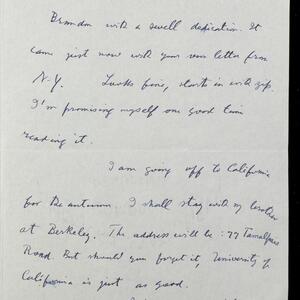 Brandon with a swell dedication. It
came just now with your own letter from
N.Y. Looks fine, starts in with zip.
I'm promising myself one good time
reading it.
I am going off to California
for the autumn. I shall stay with my brother
at Berkeley. The address will be : 77 Tamalpais
Road. But should you forget it, University of
California is just as good.